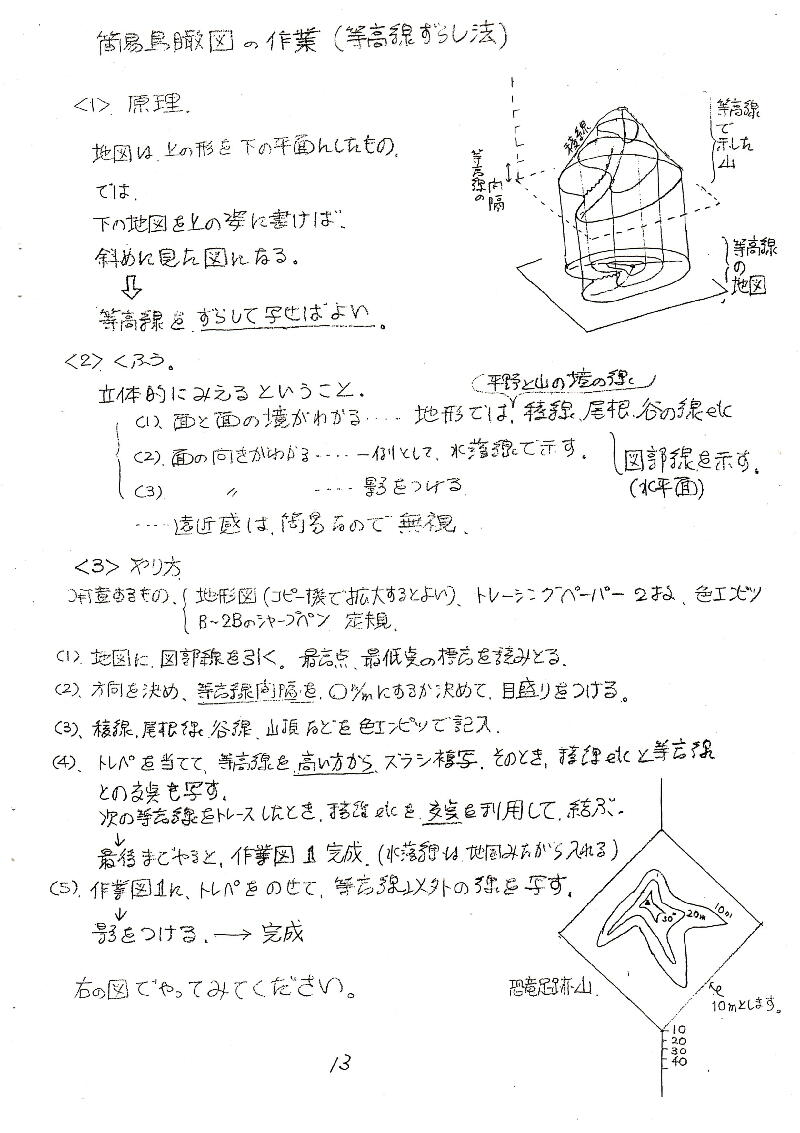 簡易鳥瞰図の作業(等高線ずらし法)
<1> 原理.
地図は、上の形を下の平面にしたもの.
では、
下の地図を上の姿に書けば、
斜めに見た図になる。
⇩
等高線を ずらして写せばよい。
等高線の間隔
稜線
等高線で示した山
等高線の地図
<2> くふう。
立体的にみえるということ.
(平野と山の境の線)
(1). 面と面の境がわかる‥‥ 地形では、稜線、尾根、谷の線etc
(2). 面の向きがわかる‥‥一例として、水落線で示す。
図部線を示す。
(水平面)
(3) 〃 ‥‥ 影をつける
‥‥遠近感は、簡易なので無視、
<3> やり方
するもの、地形図(コピー機で拡大するとよい)、トレーシングペーパー 2まい、色エンピツ
B~2Bのシャープペン 定規、
(1). 地図に、図部線を引く。最高点、最低点の標高を読みとる.
(2). 方向を決め、等高線間隔を、○m/mにするか決めて、目盛りをつける。
(3)、稜線、尾根線、谷線、山頂などを色エンピツで記入.
(4)、トレペを当てて、等高線を、高い方から ズラシ複写. そのとき、稜線etcと等高線
との交点も写す.
次の等高線をトレースしたとき、稜線etcを、交点を利用して、結ぶ.
↓
最後までやると、作業図1完成. (水落線は、地図みながら入れる)
(5). 作業図1に、トレペをのせて、等高線以外の線を写す.
↓
影をつける. → 完成
右の図でやってみてください。
恐竜足跡山.
30m
20m
10m
10mとします。
10
20
30
40
13